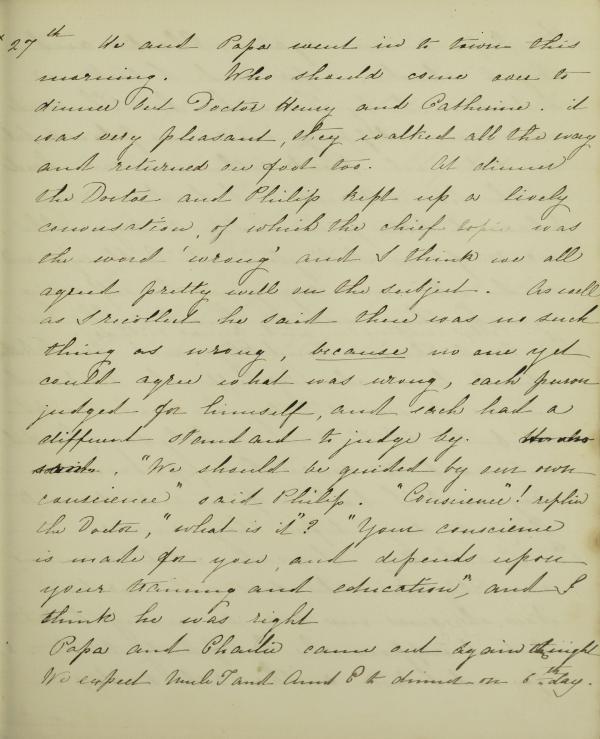 27th He and Papa went in to town this
morning. Who should come over to
dinner but Doctor Henry and Catherine. it
was very pleasant, they walked all the way
and returned on foot too. At dinner
the Doctor and Philip kept up a lively
conversation, of which the chief topic was
the word 'wrong' and I think we all
agreed pretty well on the subject. As well
as I recollect he said there was no such
thing as wrong, because no one yet
could agree what was wrong, each person
judged for himself, and each had a
different standard to judge by. He also
said, "We should be guided by our own
conscience" said Philip. "Conscience"! replied
the Doctor, "what is it"? "Your conscience
is made for you, and depends upon
your training and education", and I
think he was right
Papa and Charlie came out again tonight
We expect Uncle T and Aunt E to dinner on 6th day.